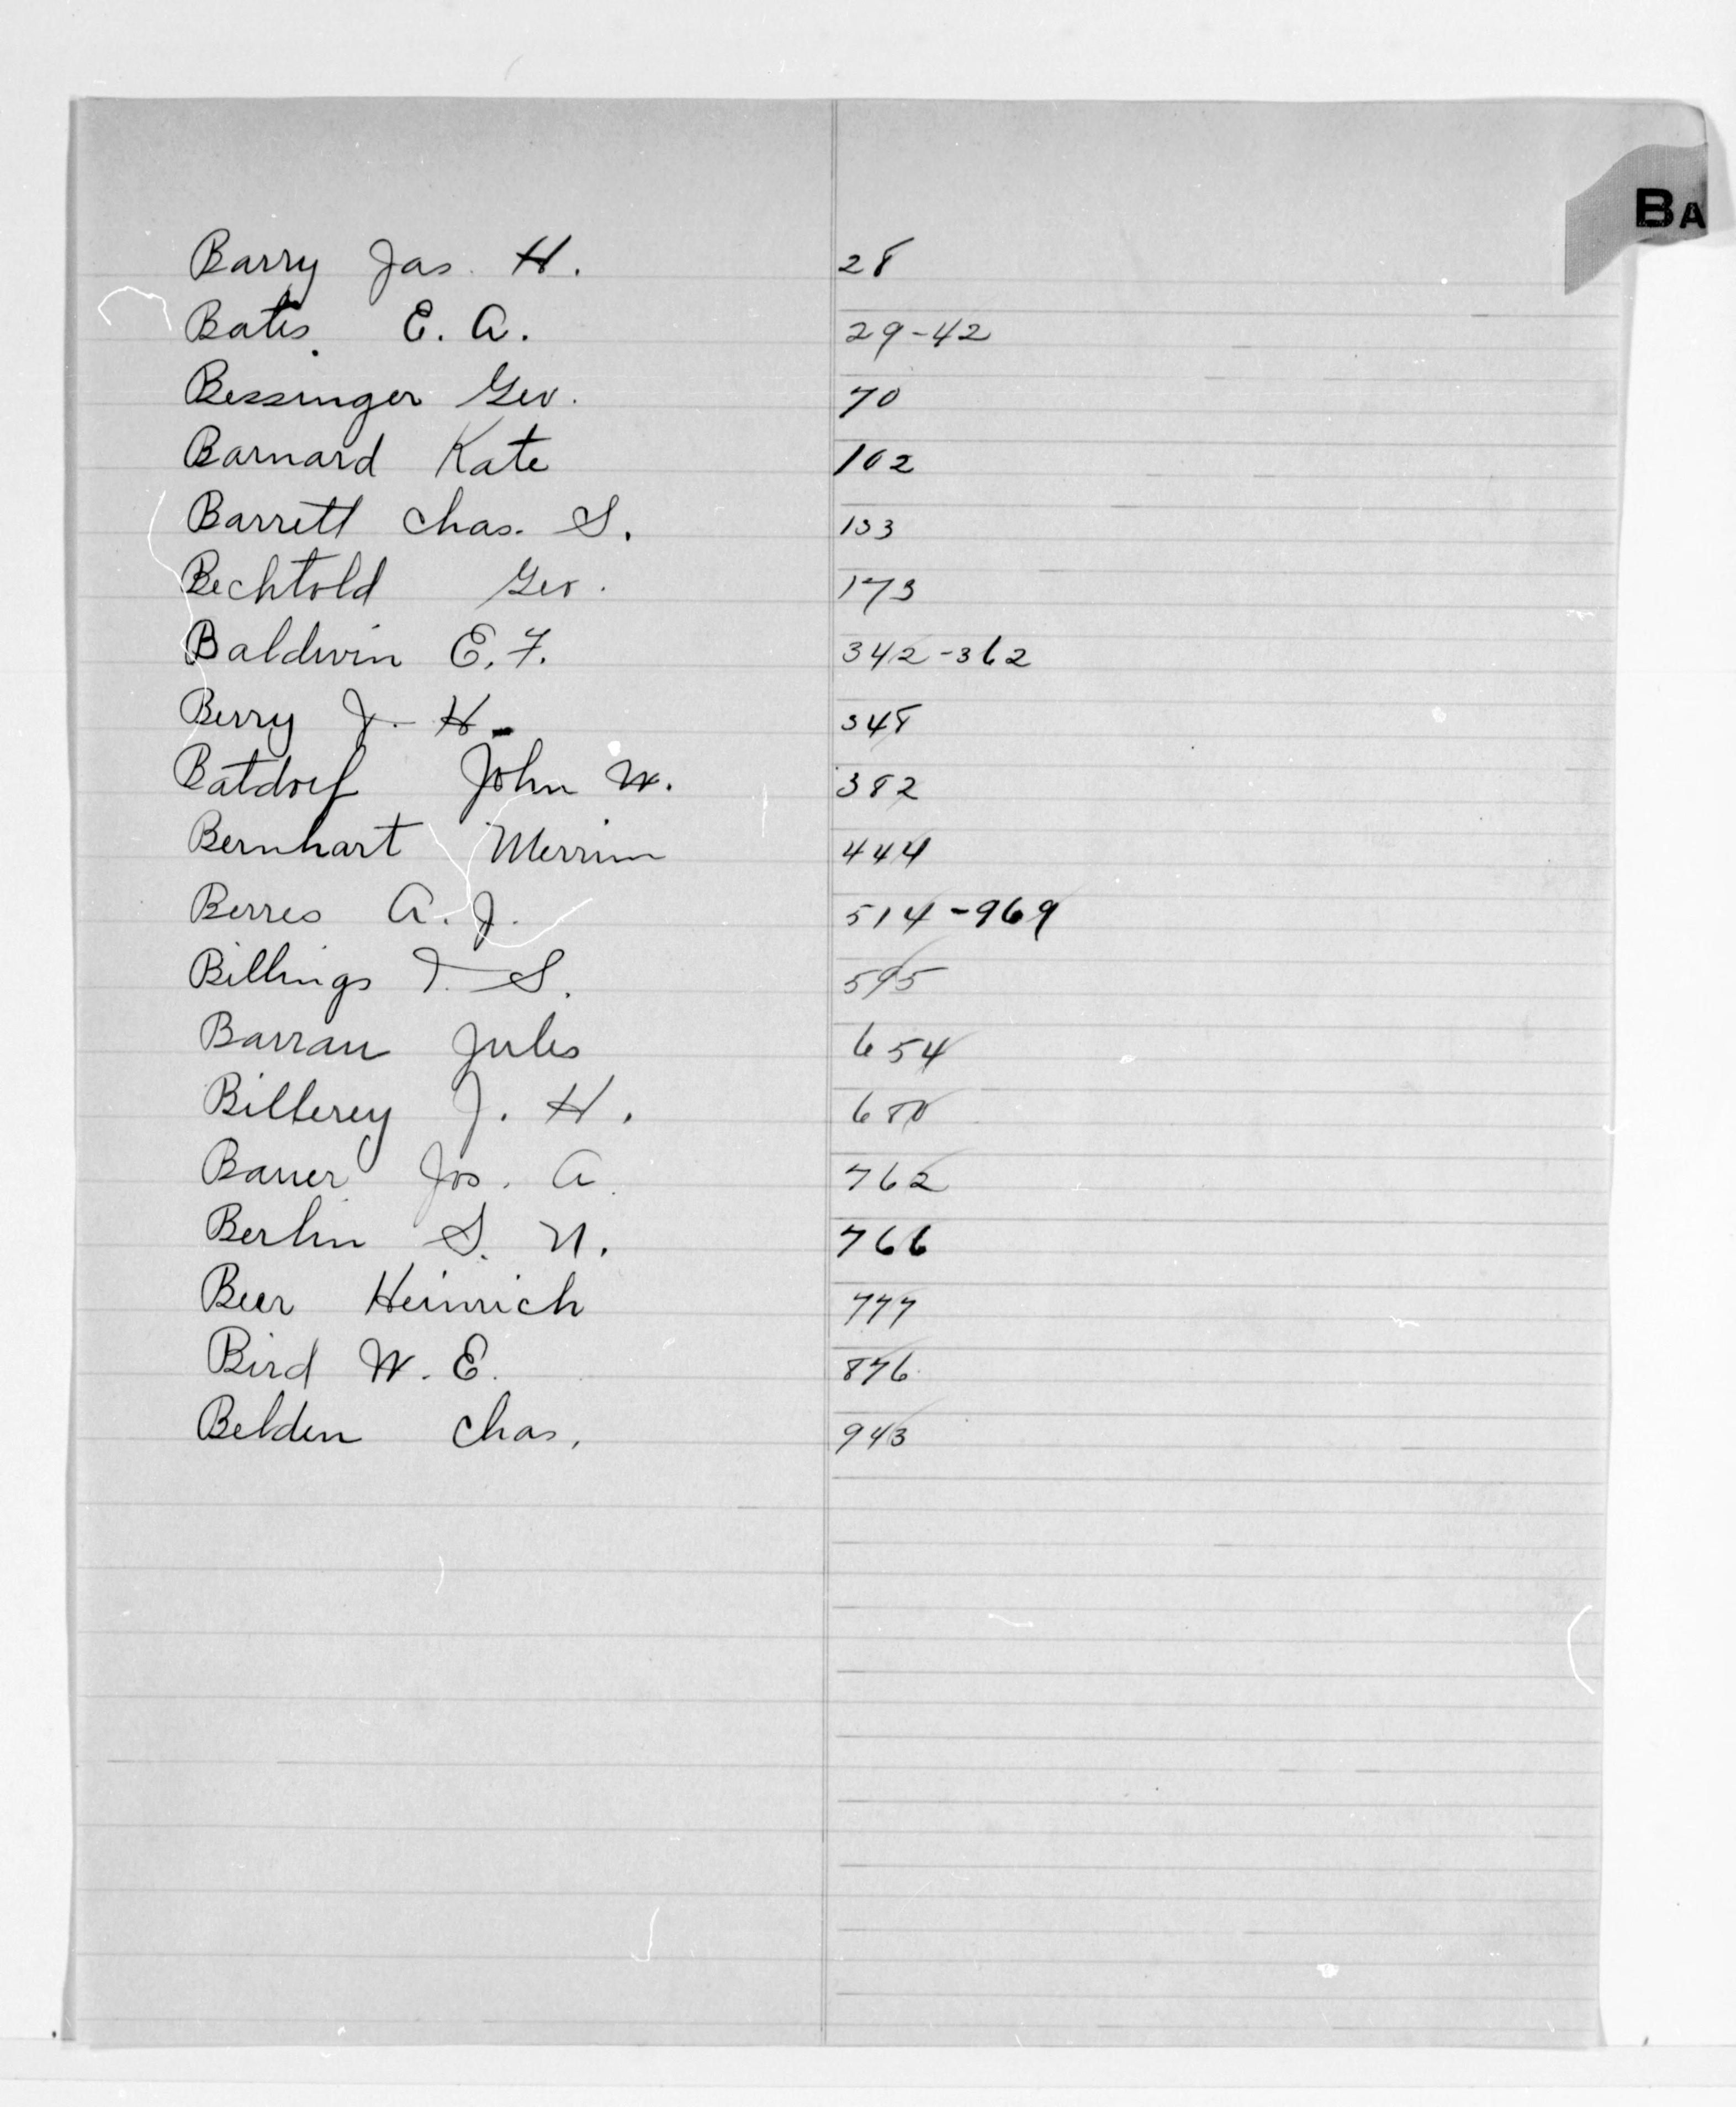 BA
Barry Jas. H. 28
Bates. E. A. 29-42
Bessinger Geo. 70
Barnard Kate 102
Barrett Chas. S. 133
Bechtold Geo. 173
Baldwin E. F. 342-362
Berry J. H. 348
Batdorf John W. 382
Bernhart 444
Berres A. J. 514-969
Billings S. 595
Jules 654
Billerey J. H. 680
Bauer Jos. A. 762
Berlin S. N. 766
Beer Heinrich 777
Bird W. E. 876
Belden Chas. 943